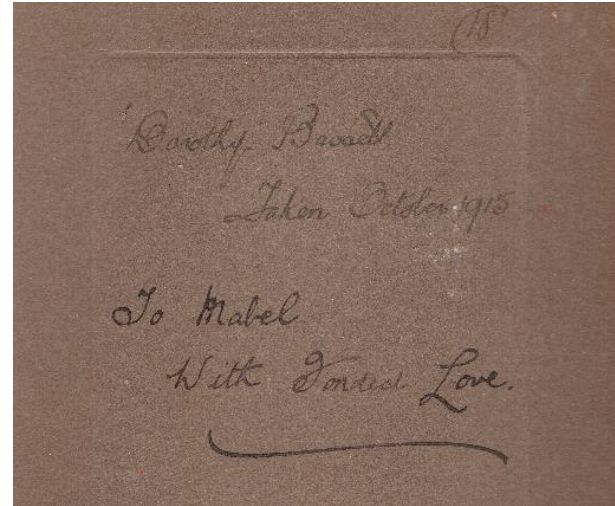 (18)
"Dorothy"
Taken October 1915
To Mabel
With Fondest Love.